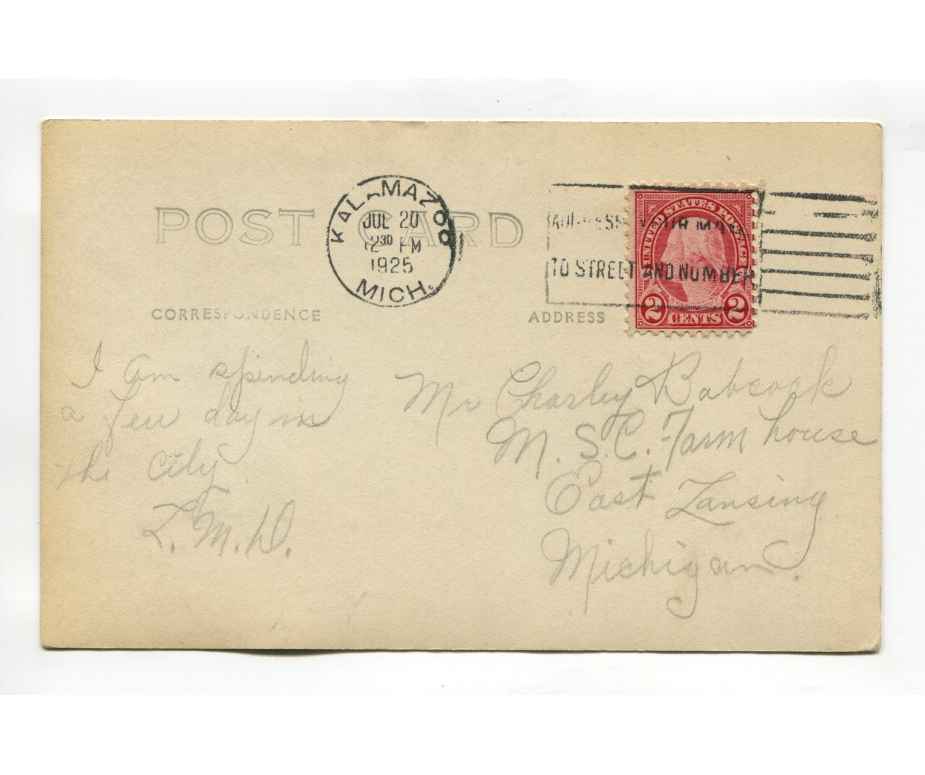 POST CARD
KALAMAZOO
JUL 20
12 30 PM
1925
MICH.
ADDRESS YOUR MAIL
TO STREET AND NUMBER
UNITED STATES POSTAGE
2 CENTS 2
CORRESPONDENCE
ADDRESS
I am spending
a few day in
the city
L.M.D.
Mr Charley Babcock
M.S.C. Farm house
East Lansing
Michigan.